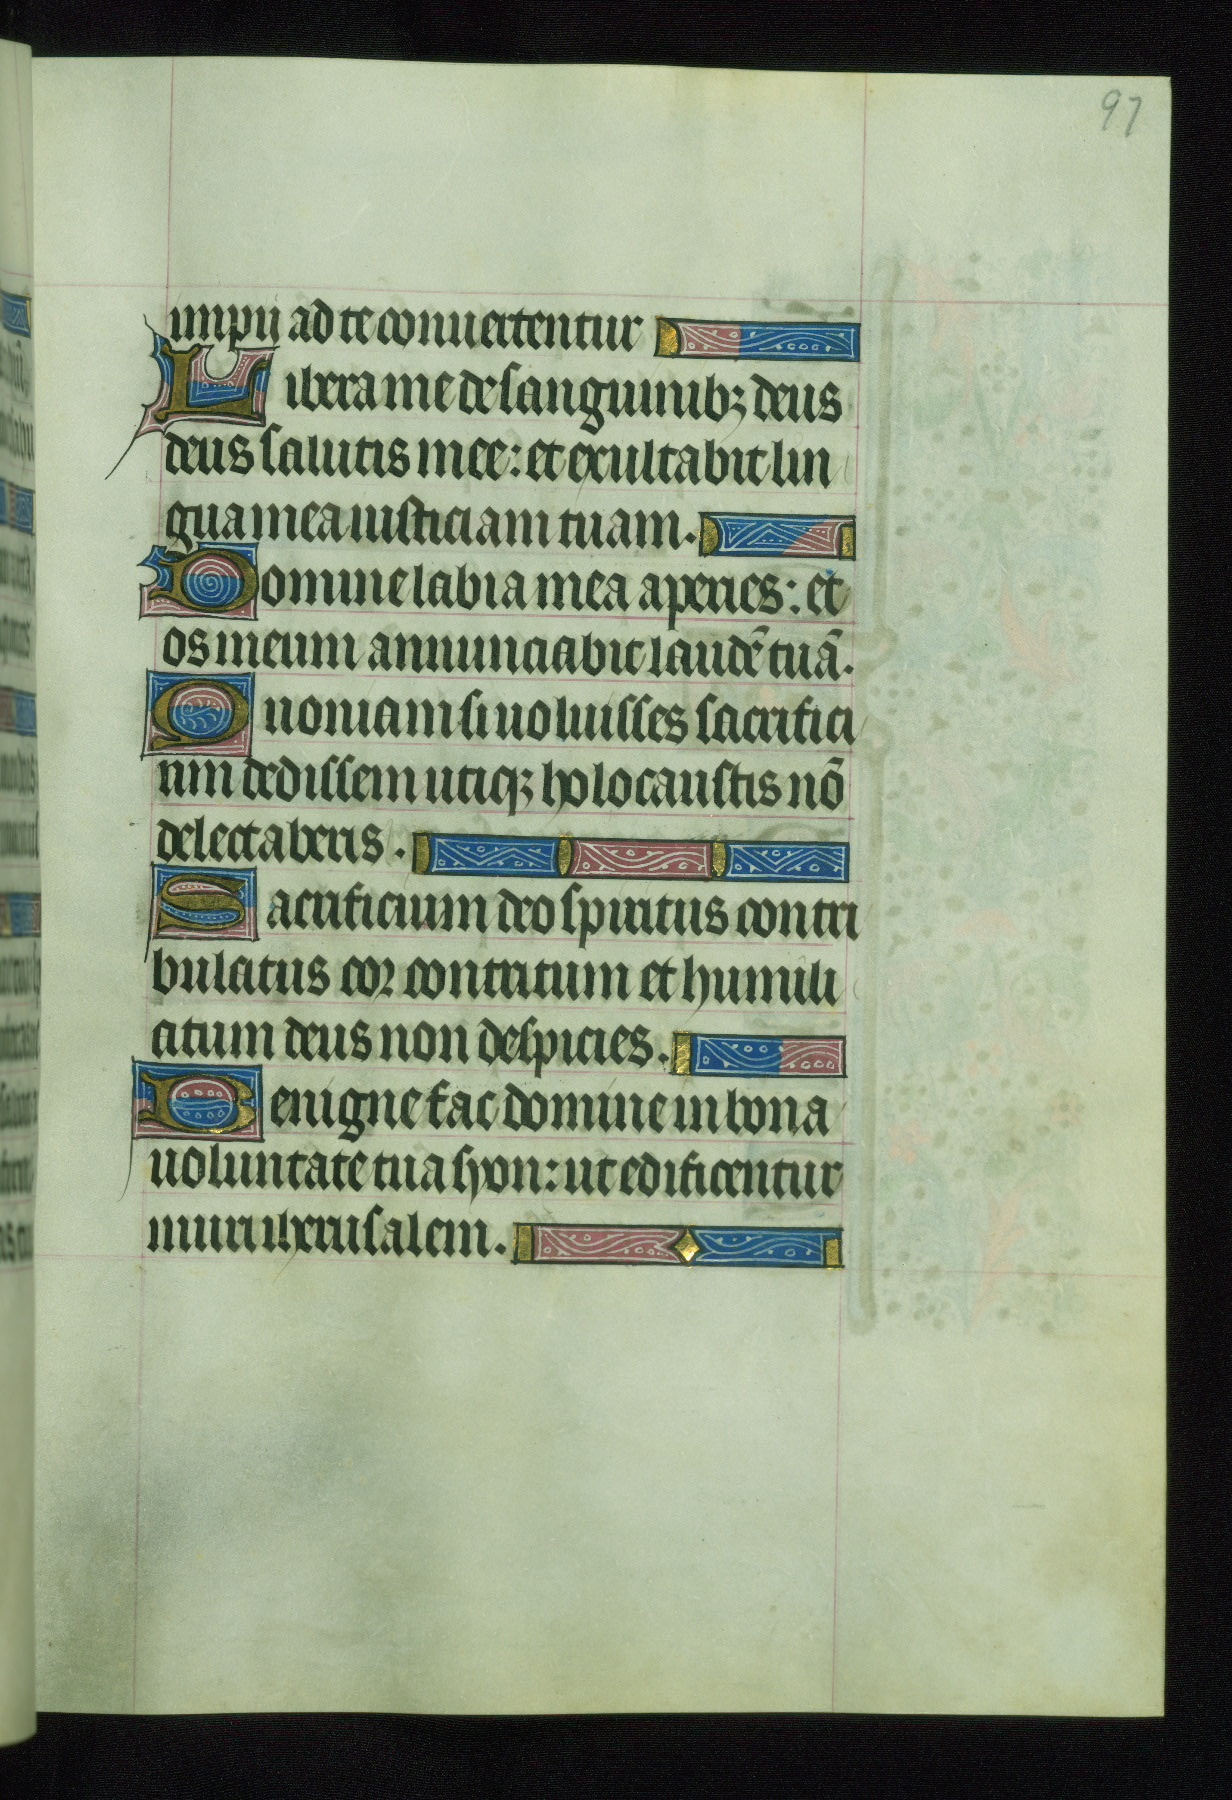 97
impii ad te conuertentur
Libera me de sanguinibꝫ deus
deus salutis mee: et exultabit lin
gua mea iusticiam tuam.
Domine labia mea aperies: et
os meum annunciabit laudē tuā.
Quoniam si uoluisses sacrifici
um dedissem utiqꝫ holocaustis nō
delectaberis.
Sacrificium deo spiritus contri
bulatus cor contritum et humili
atum deus non despicies.
Benigne fac domine in bona
uoluntate tua syon: ut edificentur
muri iherusalem.